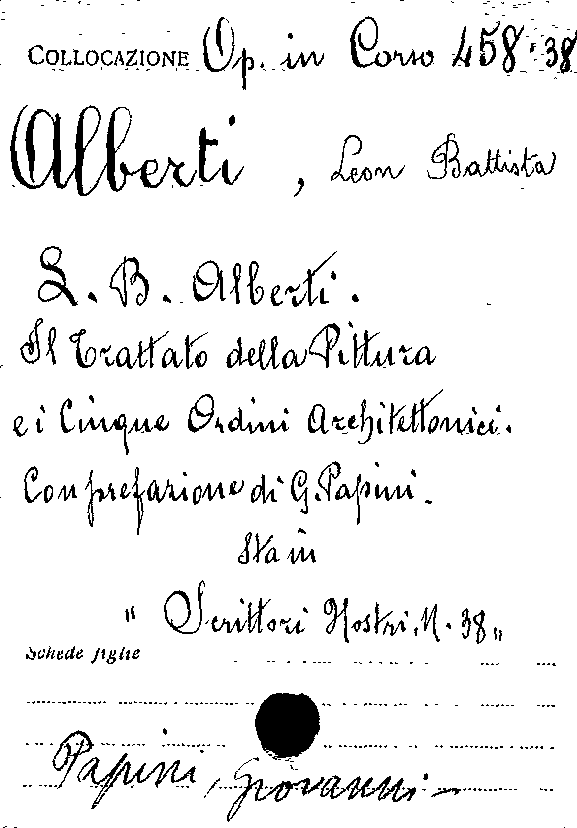 COLLOCAZIONE Op. in Corso 458.38
Alberti, Leon Battista
L. B. Alberti.
Il Trattato della Pittura
e i Cinque Ordini Architettonici.
Con prefazione di G. Papini.
Sta in
"Scrittori Nostri, N. 38"
Schede figlie
Papini, Giovanni-